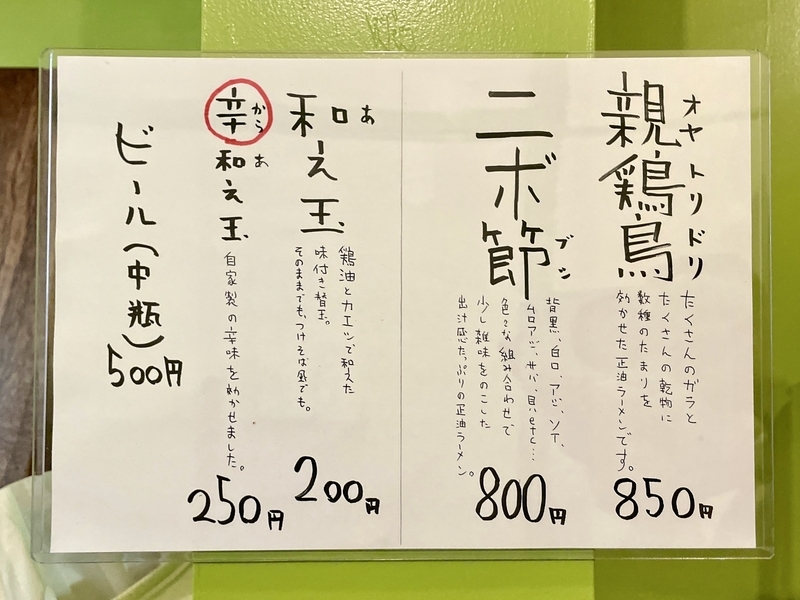 親鶏鳥
オヤトリドリ
たくさんのガラと
たくさんの乾物に
数種のたまりを
効かせた正油ラーメンです。
850円
ニボ節
ブシ
背黒、白口、アジ、ソーダ、
ムロアジ、サバ、貝、etc…
色々な組み合わせで
少し雑味をのこした
出汁感たっぷりの正油ラーメン。
800円
和え玉
あ
鶏油とカエシで和えた
味付き替玉。
そのままでも、つけそば風でも。
200円
辛和え玉
から あ
自家製の辛味を効かせました。
250円
ビール(中瓶)
500円